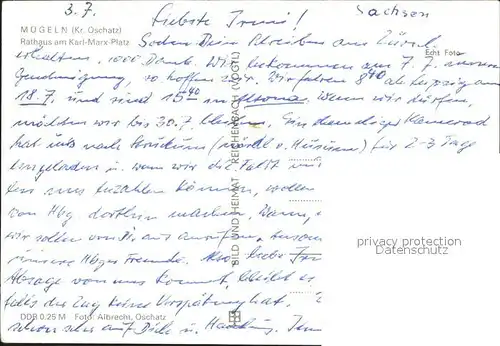 3.7. Liebste Irmi! Sachsen
MÜGELN (Kr. Oschatz)
Rathaus am Karl-Marx-Platz
Echt Foto
Soeben Dein Schreiben aus Zürich
erhalten. 1000 Dank. Wir bekommen am 7.7. unsere
Genehmigung, so hoffen wir. Wir fahren 8⁴⁰ ab Leipzig am
18.7. und sind 15⁴⁰ in Altona, wenn wir dürfen,
möchten wir bis 30.7. bleiben. Ein ehemaliger Kamerad
hat uns nach (nördl. v. Husum) für 2-3 Tage
eingeladen u. wenn wir die Fahrt
bezahlen können, wollen
von Hbg dorthin machen. Wann,
wir sollen
unsere Hbger Freunde. Also, liebe
Absage von uns kommt, bleibt es
falls der Zug keine Verspätung hat.
schon sehr auf Dich u. Hamburg.
BILD UND HEIMAT REICHENBACH (VOGTL)
DDR 0.25 M Foto: Albrecht, Oschatz
privacy protection
Datenschutz